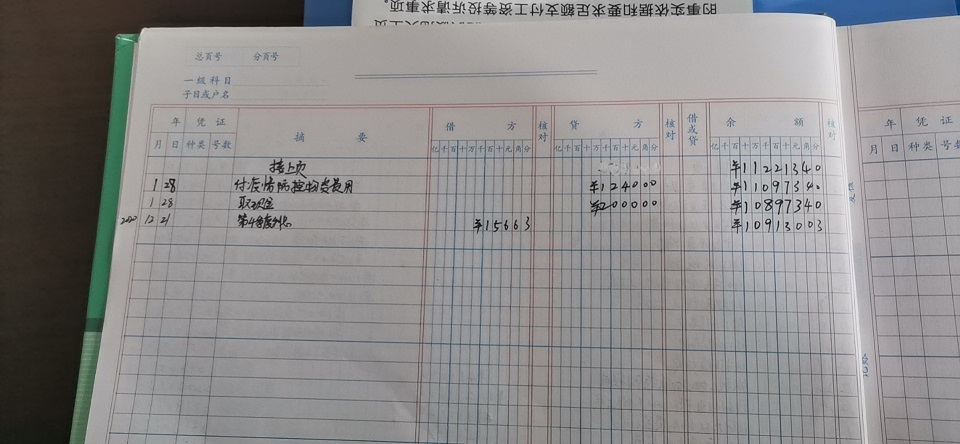 的事实依据和要求足额支付工资等投诉请求事项。
总页号 分页号
一级科目
子目或户名
年 凭证 摘要 借方 核对 贷方 核对 借或贷 余额 核对 年 凭证
月 日 种类 号数 亿千百十万千百十元角分 亿千百十万千百十元角分 亿千百十万千百十元角分 月 日 种类 号数
接上页 ¥11221340
1 28 付疫情防控物资费用 ¥124000 ¥11097340
1 28 取现金 ¥200000 ¥10897340
12 21 ¥15663 ¥10913003